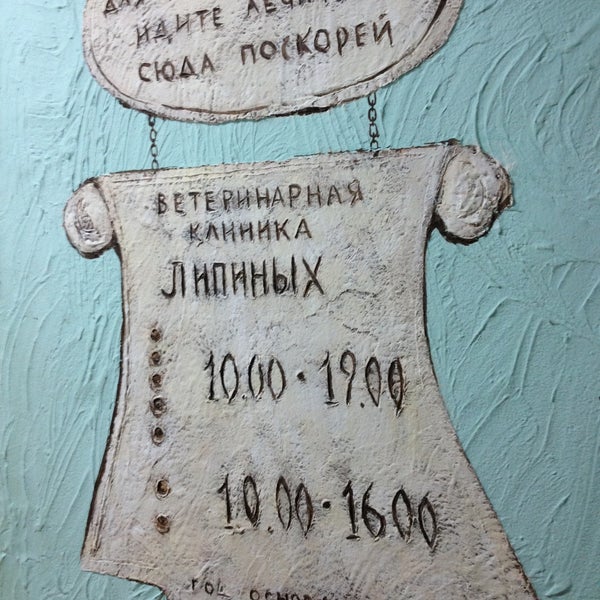 ИДИТЕ
СЮДА ПОСКОРЕЙ
ВЕТЕРИНАРНАЯ
КЛИНИКА
ЛИПИНЫХ
10.00 · 19.00
10.00 · 16.00